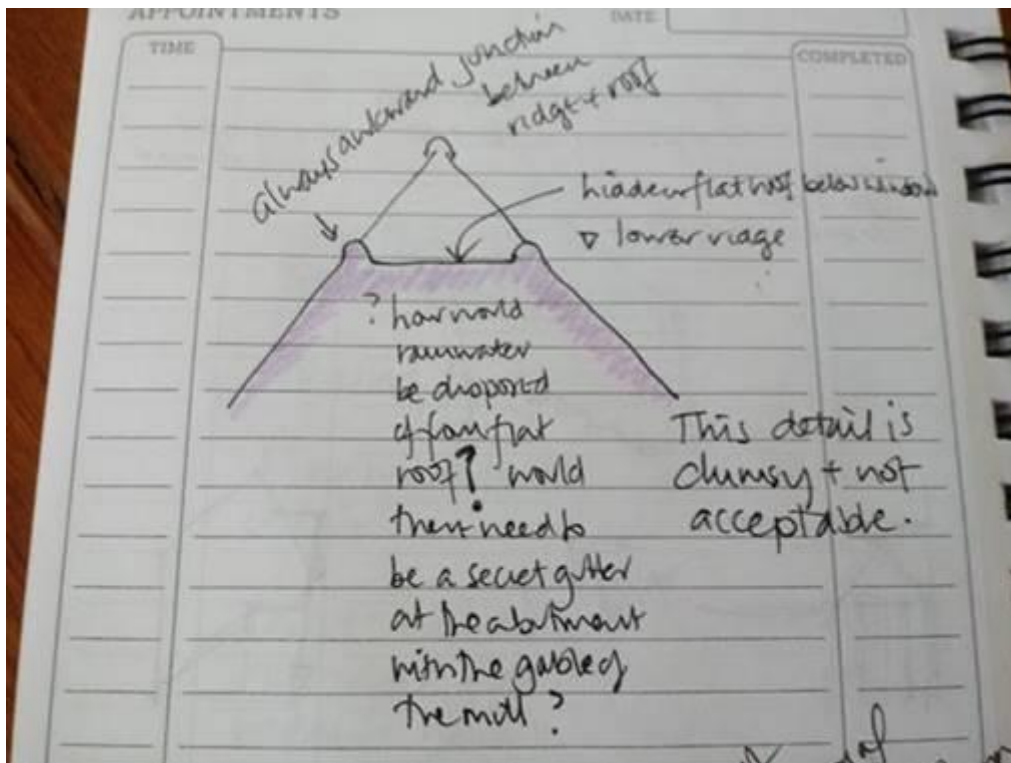 APPOINTMENTS
DATE
TIME
COMPLETED
always awkward junction
between
ridge + roof
hidden flat roof below window
▽ lower ridge
? how would
rainwater
be disposed
of from flat
roof? would
there need to
be a secret gutter
at the abutment
with the gable of
the mill?
This detail is
clumsy + not
acceptable.
of